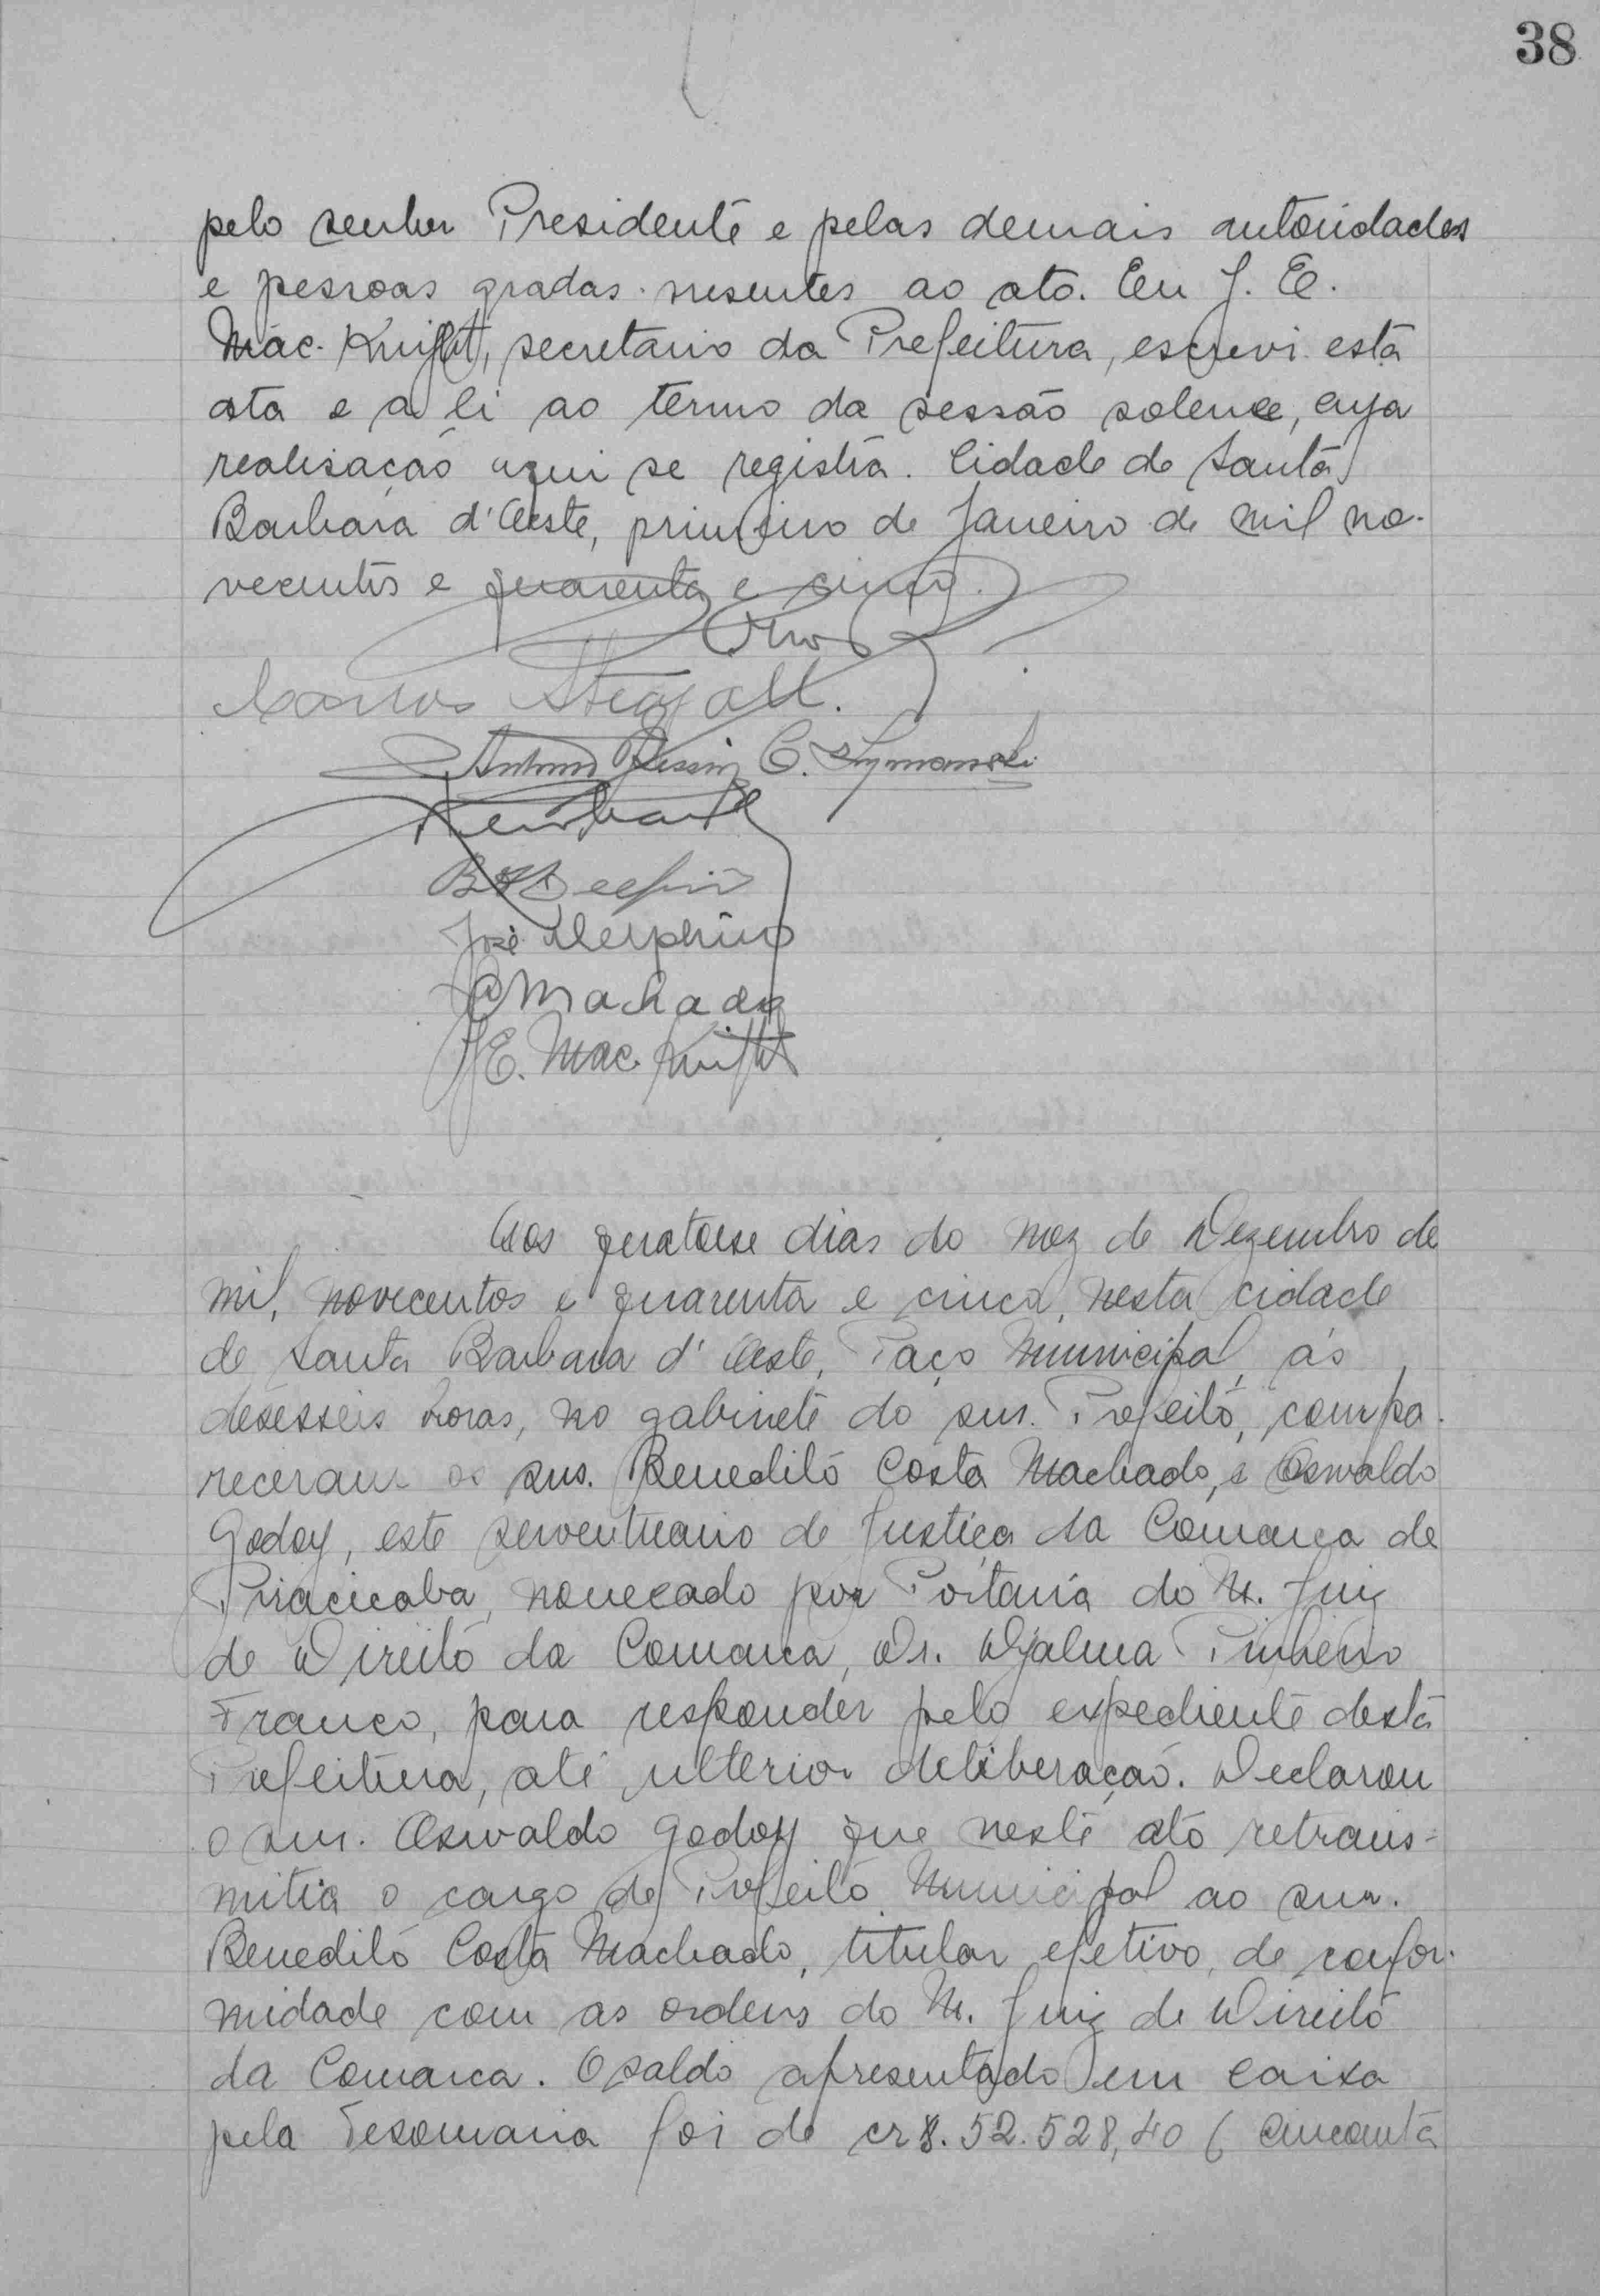 38
pelo senhor Presidente e pelas demais autoridades
e pessoas gradas presentes ao ato. Eu J. E.
Mac-Knight, secretario da Prefeitura, escrevi esta
ata e a li ao termo da sessão solene, cuja
realisação aqui se registra. Cidade de Santa
Barbara d'Oeste, primeiro de Janeiro de mil no-
vecentos e quarenta e cinco.
Carlos Steagall.
Antonio C. Szymanski
José Delphino
Machado
J.E. Mac. Knight
Aos quatorze dias do mez de Dezembro de
mil, novecentos e quarenta e cinco, nesta cidade
de Santa Barbara d'Oeste, Paço Municipal, ás
desesseis horas, no gabinete do snr. Prefeito, compa-
receram os sns. Benedito Costa Machado, e Oswaldo
Godoy, este serventuario de Justiça da Comarca de
Piracicaba, nomeado por Portaria do M. Juiz
de Direito da Comarca, Dr. Djalma Pinheiro
Franco, para responder pelo expediente desta
Prefeitura, até ulterior deliberação. Declarou
o snr. Oswaldo Godoy que neste ato retrans-
mitia o cargo de Prefeito Municipal ao snr.
Benedito Costa Machado, titular efetivo, de confor-
midade com as ordens do M. Juiz de Direito
da Comarca. O saldo apresentado em caixa
pela Tesouraria foi de cr$. 52.528,40 ( cincoenta